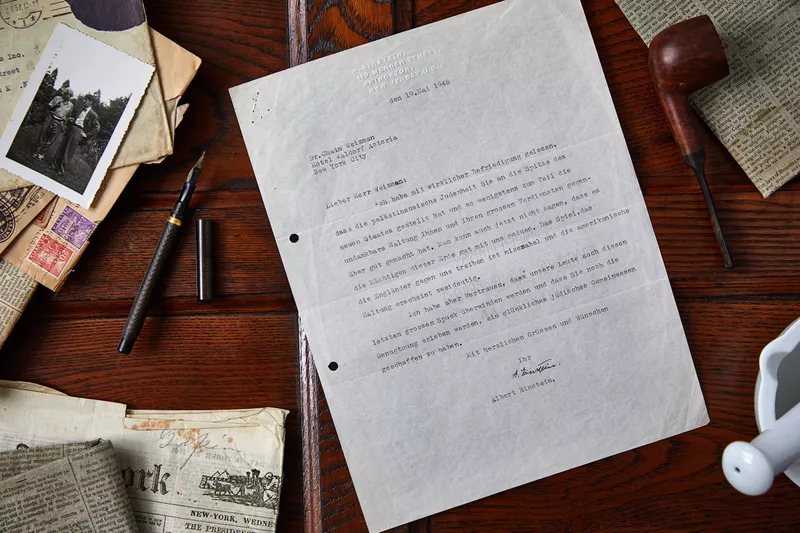 EINSTEIN
112 MERCER STREET
PRINCETON
NEW JERSEY, U.S.A.
den 19.Mai 1948
Dr.Chaim Weizman
Hotel Waldorf Astoria
New York City
Lieber Herr Weizman:
Ich habe mit wirklicher Befriedigung gelesen,
dass die palästinensische Judenheit Sie an die Spitze des
neuen Staates gestellt hat und so wenigstens zum Teil die
undankbare Haltung Ihnen und Ihren grossen Verdiensten gegen-
über gut gemacht hat. Man kann auch jetzt nicht sagen, dass es
die Mächtigen dieser Erde gut mit uns meinen. Das Spiel,das
die Engländer gegen uns treiben ist miserabel und die amerikanische
Haltung erscheint zweideutig.
Ich habe aber Vertrauen, dass unsere Leute auch diesen
letzten grossen Spuck überwinden werden und dass Sie noch die
Genugtuung erleben werden, ein glückliches jüdisches Gemeinwesen
geschaffen zu haben.
Mit herzlichen Grüssen und Wünschen
Ihr
A. Einstein.
Albert Einstein.
ork
NEW-YORK, WEDNE
THE PRESIDE